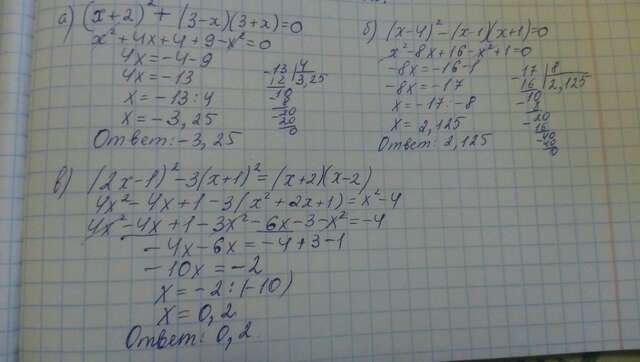 а) (x+2)² + (3-x)(3+x)=0
x²+4x+4+9-x²=0
4x=-4-9
4x=-13
x=-13:4
x=-3,25
Ответ: -3,25
-13 | 4
12 | 3,25
-10
8
-20
20
0
б) (x-4)²-(x-1)(x+1)=0
x²-8x+16-x²+1=0
-8x=-16-1
-8x=-17
x=-17:-8
x=2,125
Ответ: 2,125
-17 | 8
16 | 2,125
-10
8
-20
16
-40
40
0
в) (2x-1)²-3(x+1)²=(x+2)(x-2)
4x²-4x+1-3(x²+2x+1)=x²-4
4x²-4x+1-3x²-6x-3-x²=-4
-4x-6x=-4+3-1
-10x=-2
x=-2:(-10)
x=0,2
Ответ: 0,2